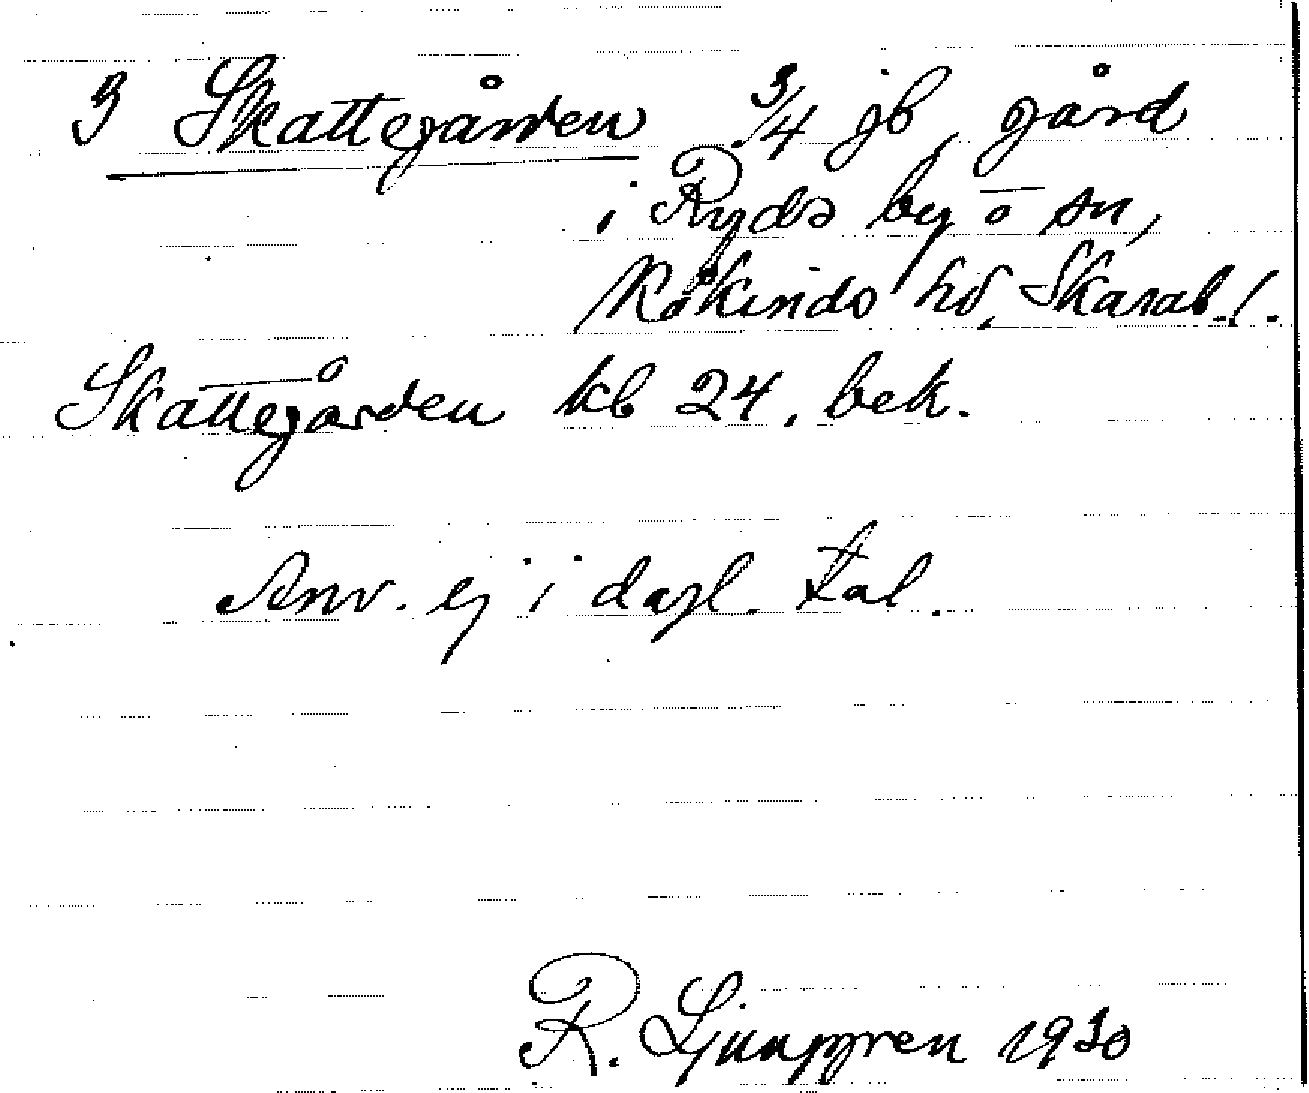 3 Skattegården 3/4 jb, gård
i Ryds by o sn,
Kåkinds hd, Skarab. l.
Skattegården kb 24, bek.
Anv. ej i dagl. tal.
R. Ljunggren 1930